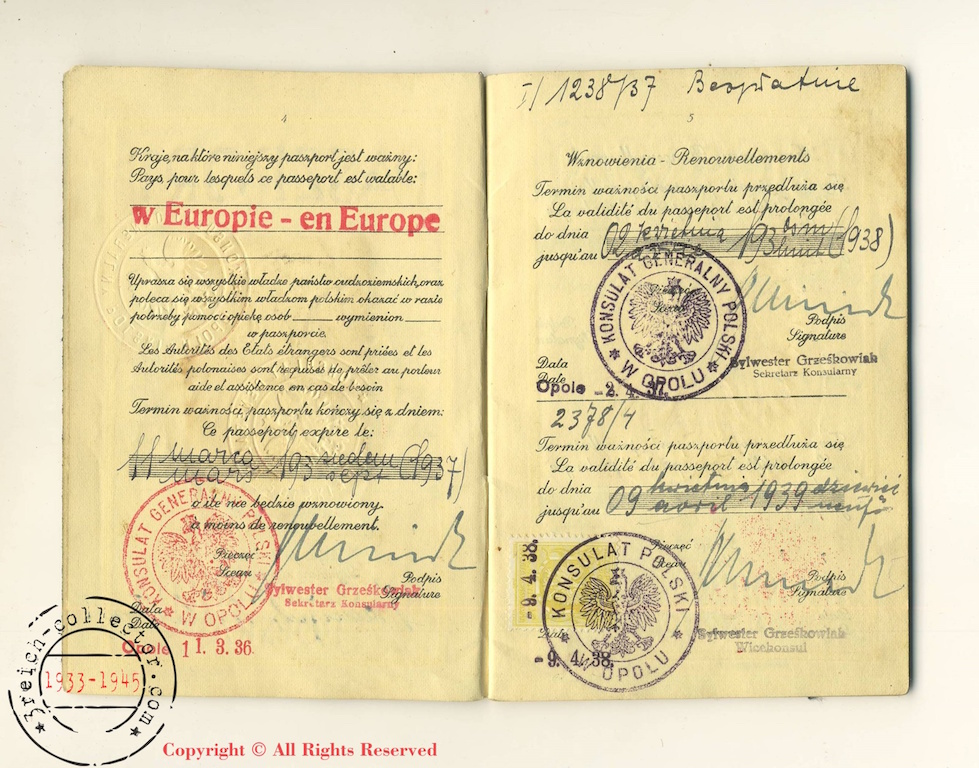 4
Kraje, na które niniejszy paszport jest ważny:
Pays, pour lesquels ce passeport est valable:
w Europie - en Europe
Uprasza się wszystkie władze państw cudzoziemskich, oraz
poleca się wszystkim władzom polskim okazać w razie
potrzeby pomoc i opiekę osob______ wymienion______
w paszporcie.
Les Autorités des Etats étrangers sont priées et les
Autorités polonaises sont requises de prêter au porteur
aide et assistance en cas de besoin
Termin ważności paszportu kończy się z dniem:
Ce passeport expire le:
11 marca 193 siedem (1937)
mars sept
o ile nie będzie wznowiony.
à moins de renouvellement.
KONSULAT GENERALNY POLSKI
W OPOLU
Pieczęć
Sceau
Podpis
Signature
Sylwester Grześkowiak
Sekretarz Konsularny
Data
Date
Opole 11. 3. 36.
I/ 1238/37 Bezpłatnie
5
Wznowienia - Renouvellements
Termin ważności paszportu przedłuża się
La validité du passeport est prolongée
do dnia 02 kwietnia 193 osm (1938)
jusqu'au
KONSULAT GENERALNY POLSKI
W OPOLU
Podpis
Signature
Sylwester Grześkowiak
Sekretarz Konsularny
Data
Date
Opole -2. 4. 37.
2378/4
Termin ważności paszportu przedłuża się
La validité du passeport est prolongée
do dnia kwietnia dziewięć
jusqu'au 09 avril 1939 neuf
-9. 4. 38.
KONSULAT POLSKI
W OPOLU
Pieczęć
Sceau
Podpis
Signature
Sylwester Grześkowiak
Wicekonsul
Date
-9. 4. 38.
3reich-collector.com
1933-1945
Copyright © All Rights Reserved